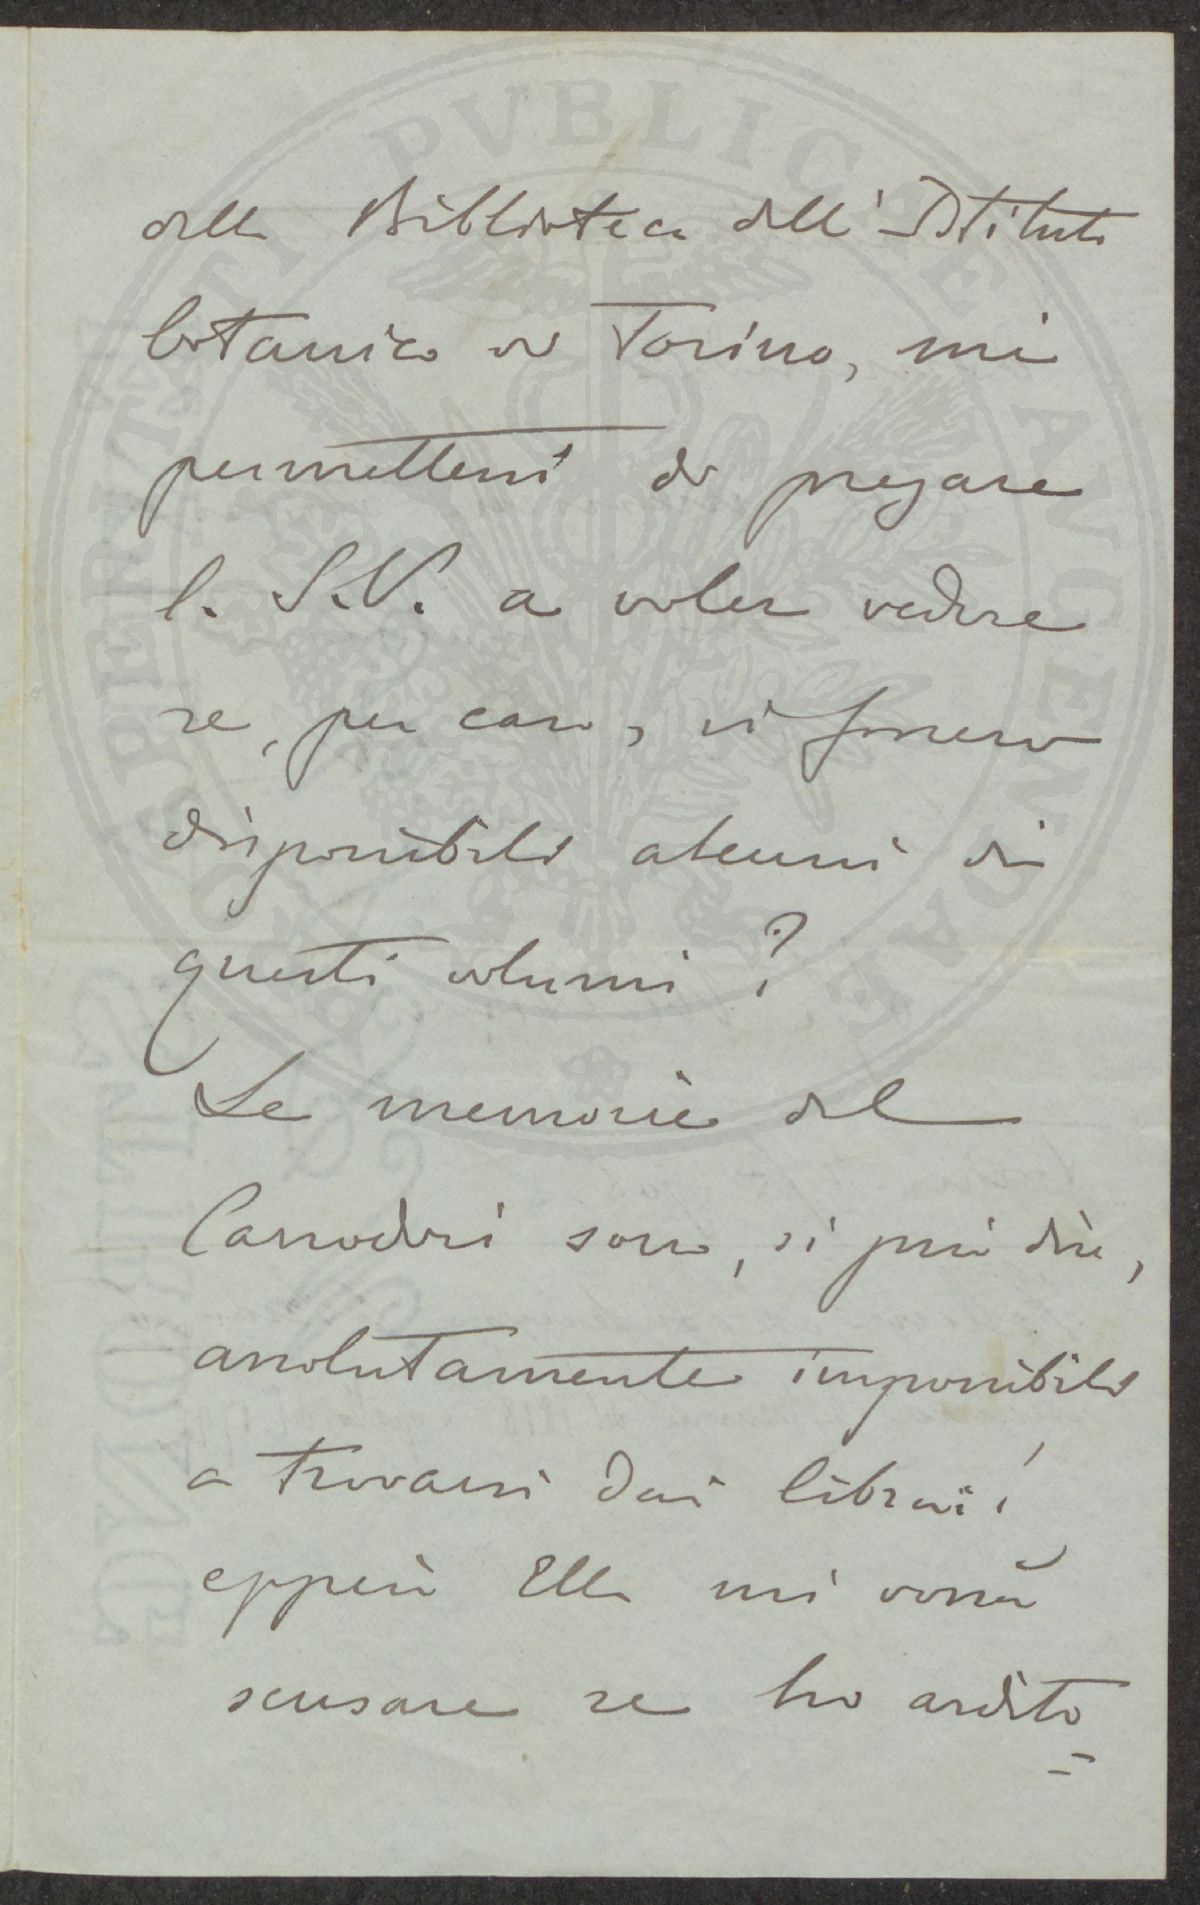 della Biblioteca dell'Istituto
botanico di Torino, mi
permettessi di pregare
la S.V. a voler vedere
se, per caso, vi fossero
disponibili alcuni di
questi volumi?
Le memorie del
sono, si può dire,
assolutamente impossibili
a trovarsi dai librai!
epperò Ella mi vorrà
scusare se ho ardito
=
PVBLICAE AVGENDAE